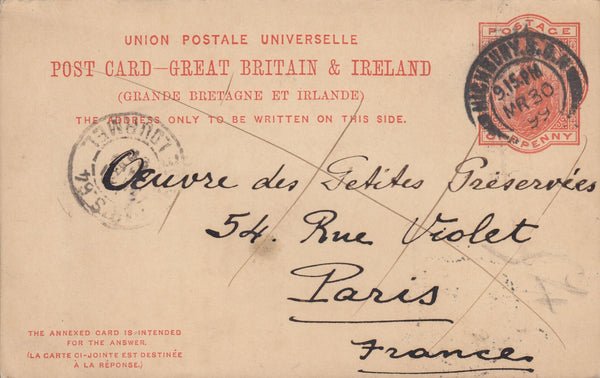 UNION POSTALE UNIVERSELLE
POST CARD—GREAT BRITAIN & IRELAND
(GRANDE BRETAGNE ET IRLANDE)
THE ADDRESS ONLY TO BE WRITTEN ON THIS SIDE.
POSTAGE
ONE PENNY
9.15 PM
MR 30
99
Oeuvre des Petites Préservées
54. Rue Violet
Paris
France
THE ANNEXED CARD IS INTENDED
FOR THE ANSWER.
(LA CARTE CI-JOINTE EST DESTINÉE
À LA RÉPONSE.)